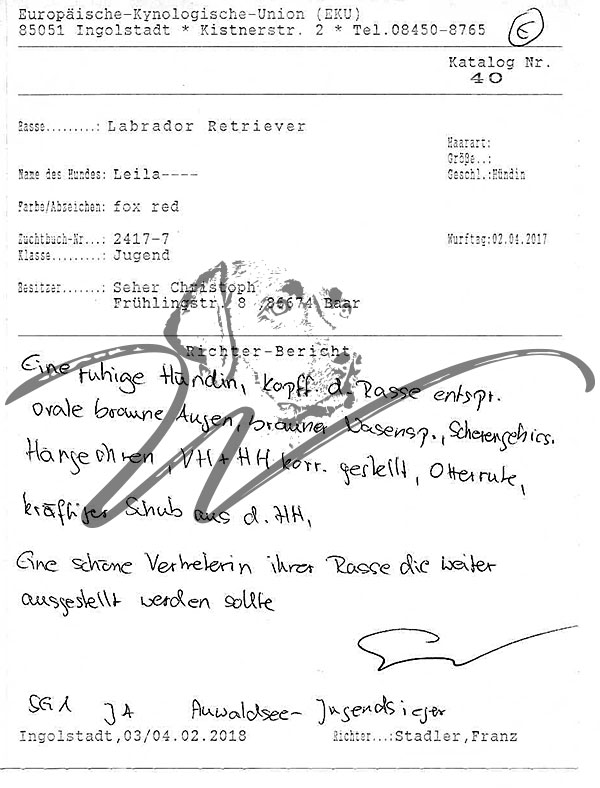 Europäische-Kynologische-Union (EKU)
85051 Ingolstadt * Kistnerstr. 2 * Tel.08450-8765
E
Katalog Nr.
40
Rasse.........: Labrador Retriever
Haarart:
Größe..:
Name des Hundes: Leila----
Geschl.:Hündin
Farbe/Abzeichen: fox red
Zuchtbuch-Nr...: 2417-7
Wurftag:02.04.2017
Klasse.........: Jugend
Besitzer.......: Seher Christoph
Frühlingstr. 8 ,86674 Baar
Richter-Bericht
Eine ruhige Hündin, Kopff d. Rasse entspr.
ovale braune Augen, brauner Nasensp., Scherengebiss.
Hängeohren, VH + HH korr. gestellt, Otterrute,
kräftiger Schub aus d. HH,
Eine schöne Vertreterin ihrer Rasse die weiter
ausgestellt werden sollte
SG1 JA Auwaldsee-Jugendsieger
Ingolstadt,03/04.02.2018
Richter...:Stadler,Franz